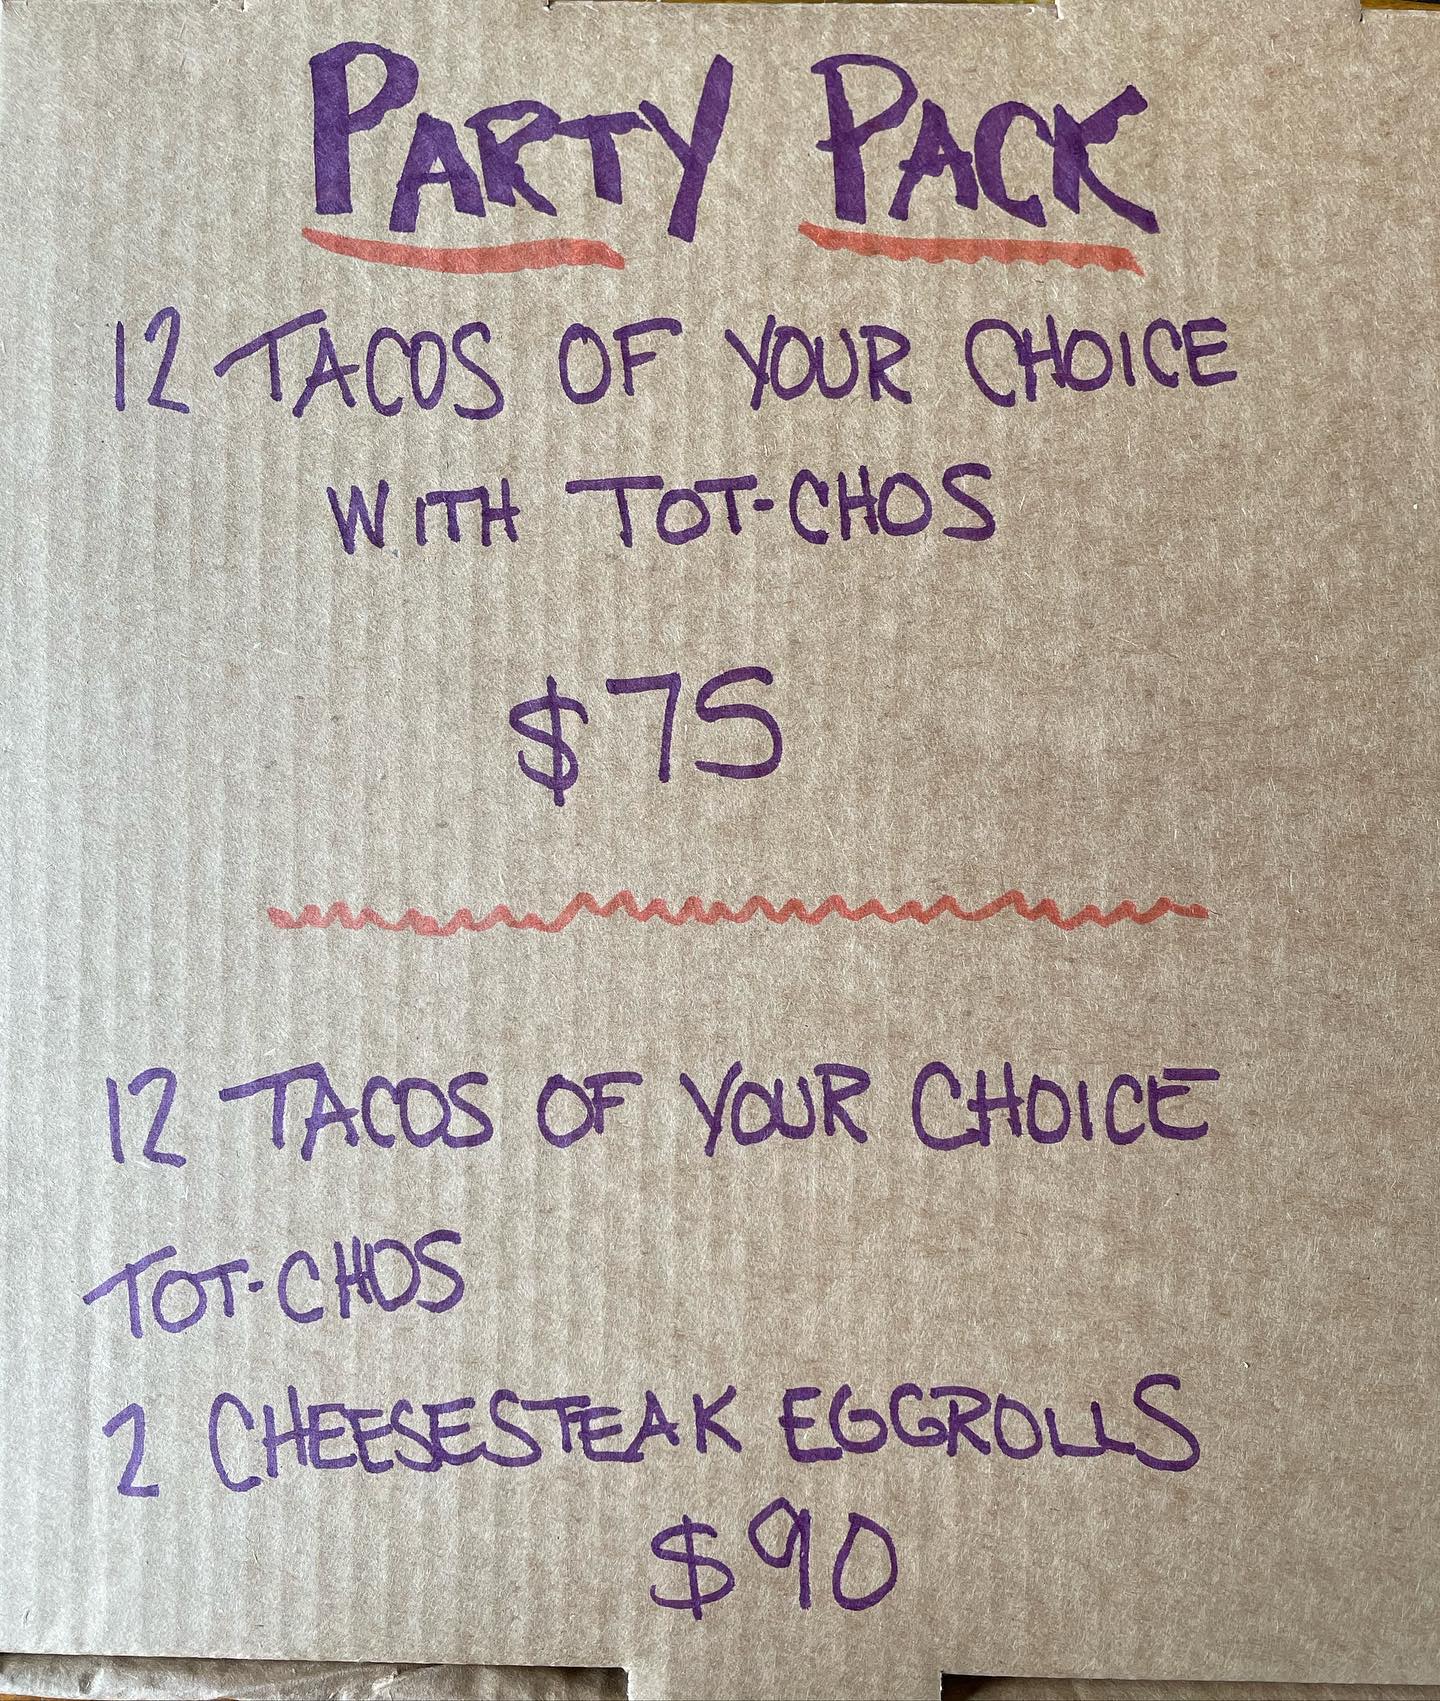 PARTY PACK
12 TACOS OF YOUR CHOICE
WITH TOT-CHOS
$75
12 TACOS OF YOUR CHOICE
TOT-CHOS
2 CHEESESTEAK EGGROLLS
$90